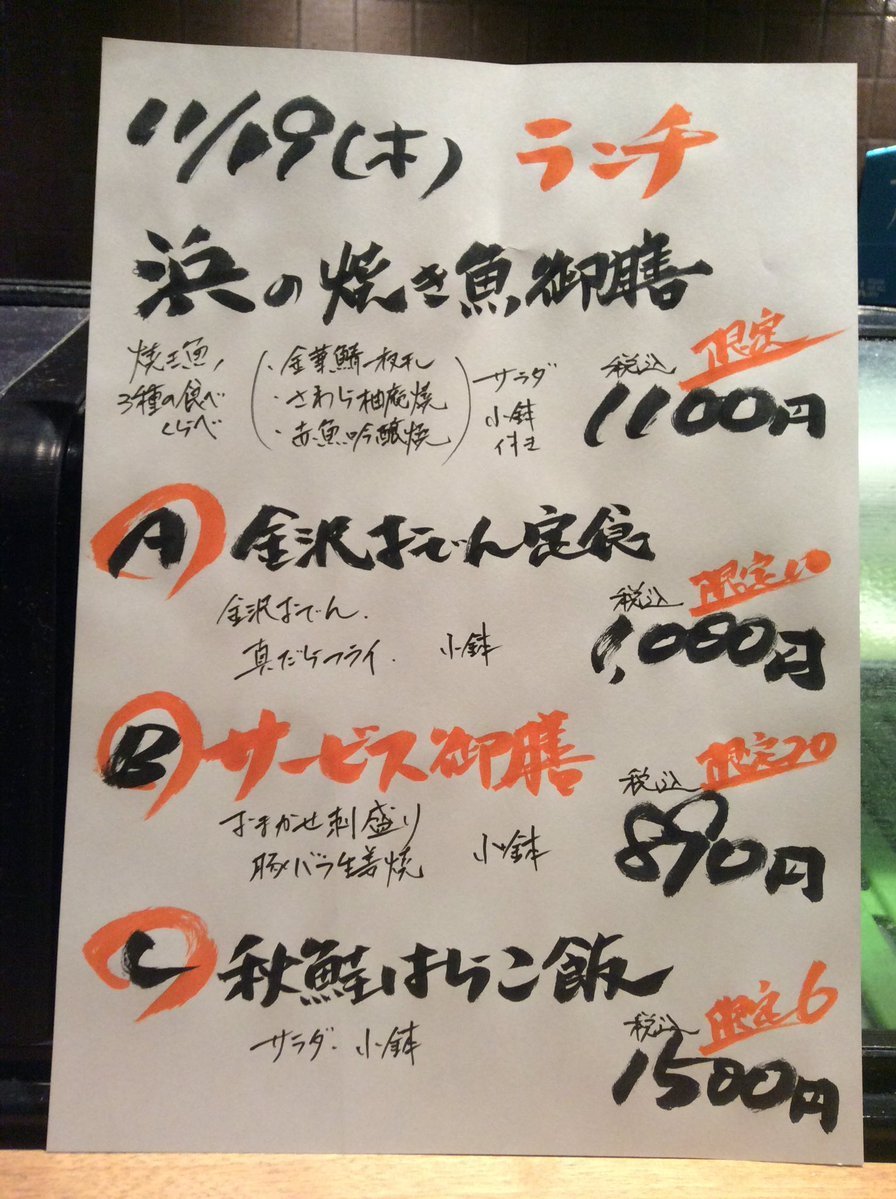 11/19(木) ランチ
浜の焼き魚御膳
焼き魚
3種の食べ
くらべ
・金華鯖一枚札
・さわら柚庵焼
・赤魚吟醸焼
サラダ
小鉢
付き
限定
税込
1100円
A 金沢おでん定食
金沢おでん.
真だらフライ. 小鉢
限定10
税込
1,000円
B サービス御膳
おまかせ刺盛り
豚バラ生姜焼 小鉢
限定20
税込
890円
C 秋鮭はらこ飯
サラダ. 小鉢
限定6
税込
1500円